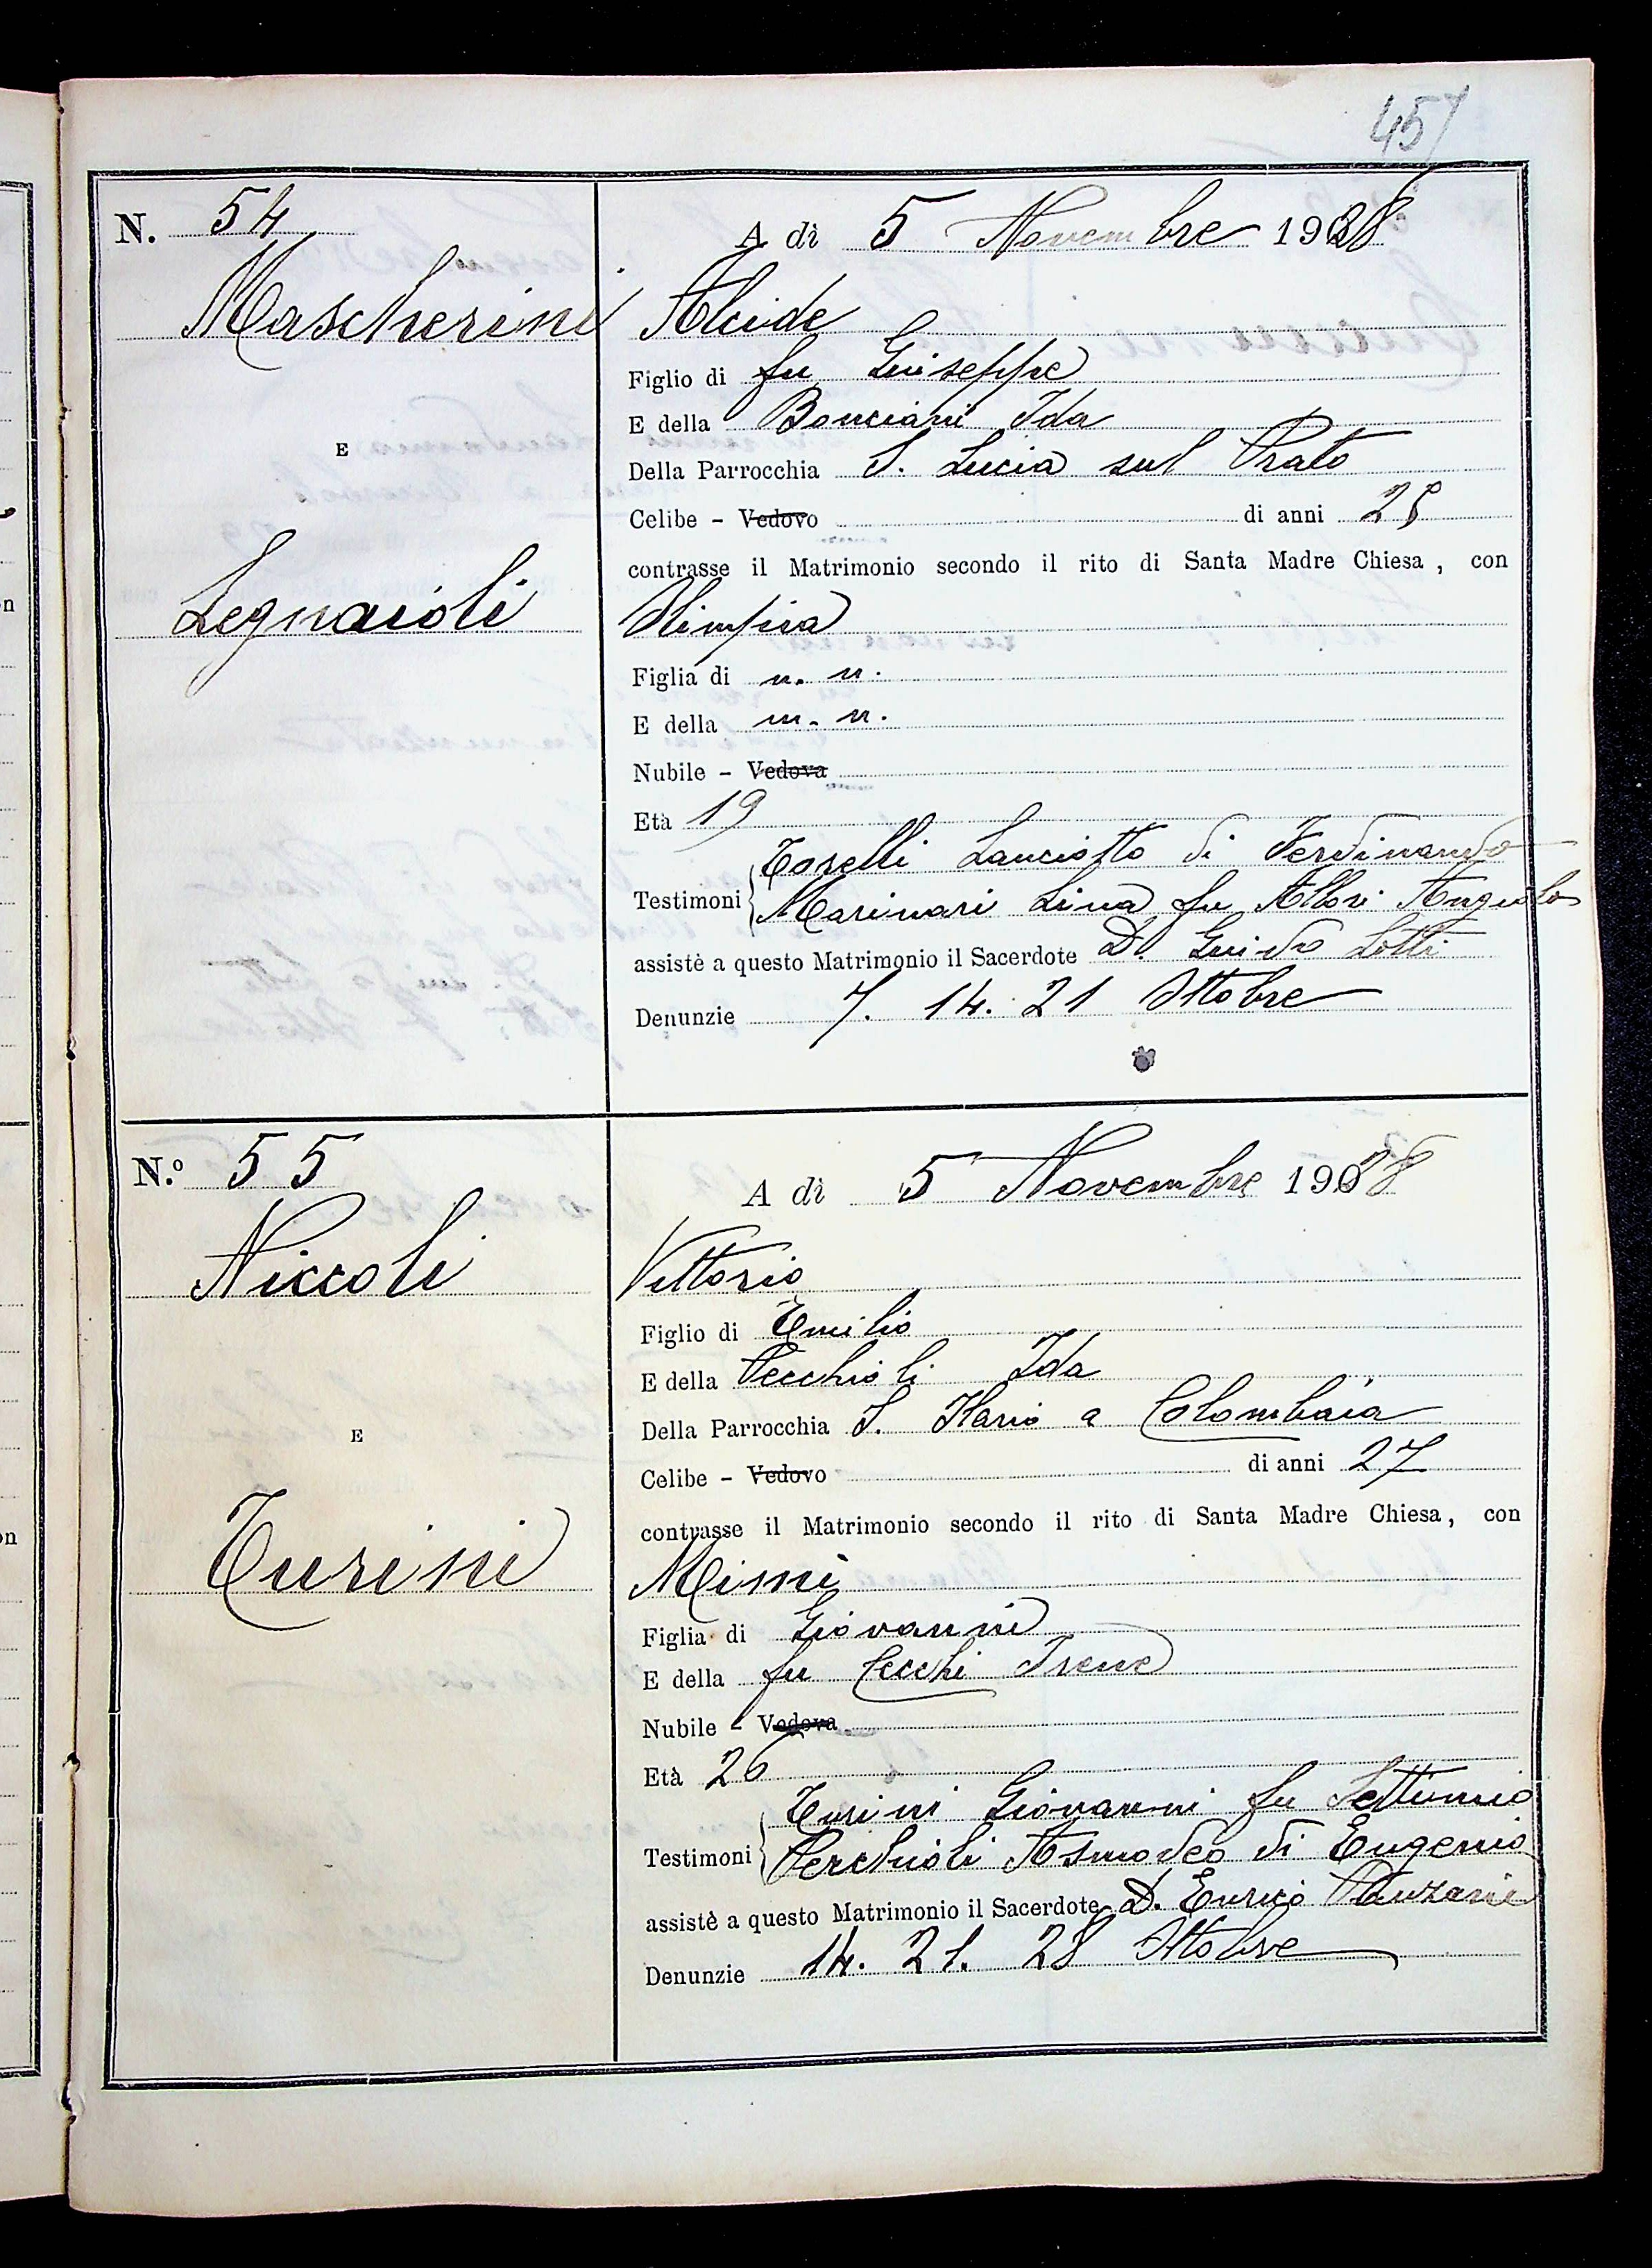 457
N. 54
A dì 5 Novembre 1928
Mascherini
Alcide
Figlio di fu Giuseppe
E della Bonciani Ida
E
Della Parrocchia S. Lucia sul Prato
Celibe - Vedovo di anni 28
contrasse il Matrimonio secondo il rito di Santa Madre Chiesa, con
Legnaioli
Olimpia
Figlia di n. n.
E della n. n.
Nubile - Vedova
Età 19
Testimoni Torelli Lanciotto di Ferdinando
Marinari Lina fu Angiolo
assistè a questo Matrimonio il Sacerdote D. Guido Lotti
Denunzie 7. 14. 21 Ottobre
N.º 55
A dì 5 Novembre 1928
Niccoli
Vittorio
Figlio di Emilio
E della Vecchioli Ida
Della Parrocchia S. Ilario a Colombaia
E
Celibe - Vedovo di anni 27
contrasse il Matrimonio secondo il rito di Santa Madre Chiesa, con
Turini
Mimì
Figlia di Giovanni
E della fu Cecchi Irene
Nubile - Vedova
Età 26
Testimoni Turini Giovanni fu Settimio
Verchioli Asmodeo di Eugenio
assistè a questo Matrimonio il Sacerdote D. Enrico
Denunzie 14. 21. 28 Ottobre